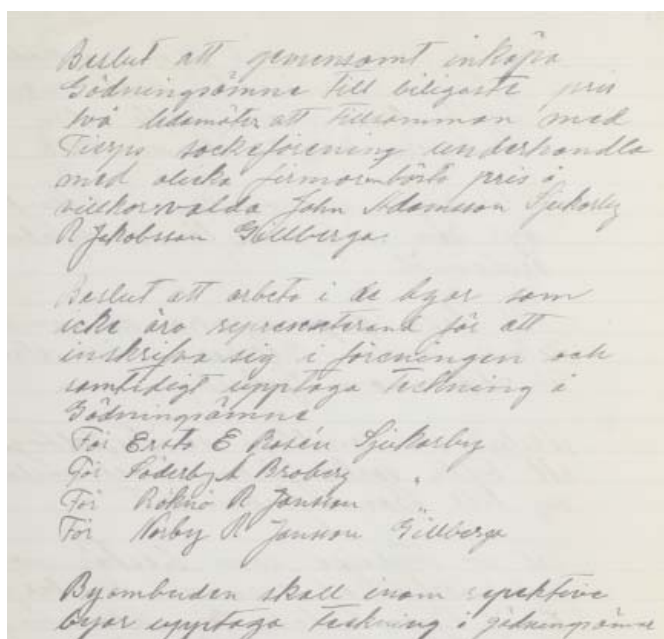 Beslut att gemensamt inköpa
Gödningsämne till biligaste pris
två ledamöter att tillsamman med
Tierps sockeförening underhandla
med olicka firmor om bästa pris o
villkor valda John Adamsson Sjukarby
R Jakobsson Gillberga.
Beslut att arbeta i de byar som
icke äro representerand för att
inskrifva sig i föreningen och
samtidigt upptaga teckning i
Gödningsämne
För Ersta E Rosén Sjukarby
För Söderby A Broberg "
För Röknö R Jansson "
För Norby R Jansson Gillberga
Byombuden skall inom repektive
byar upptaga teckning i gödningsämne